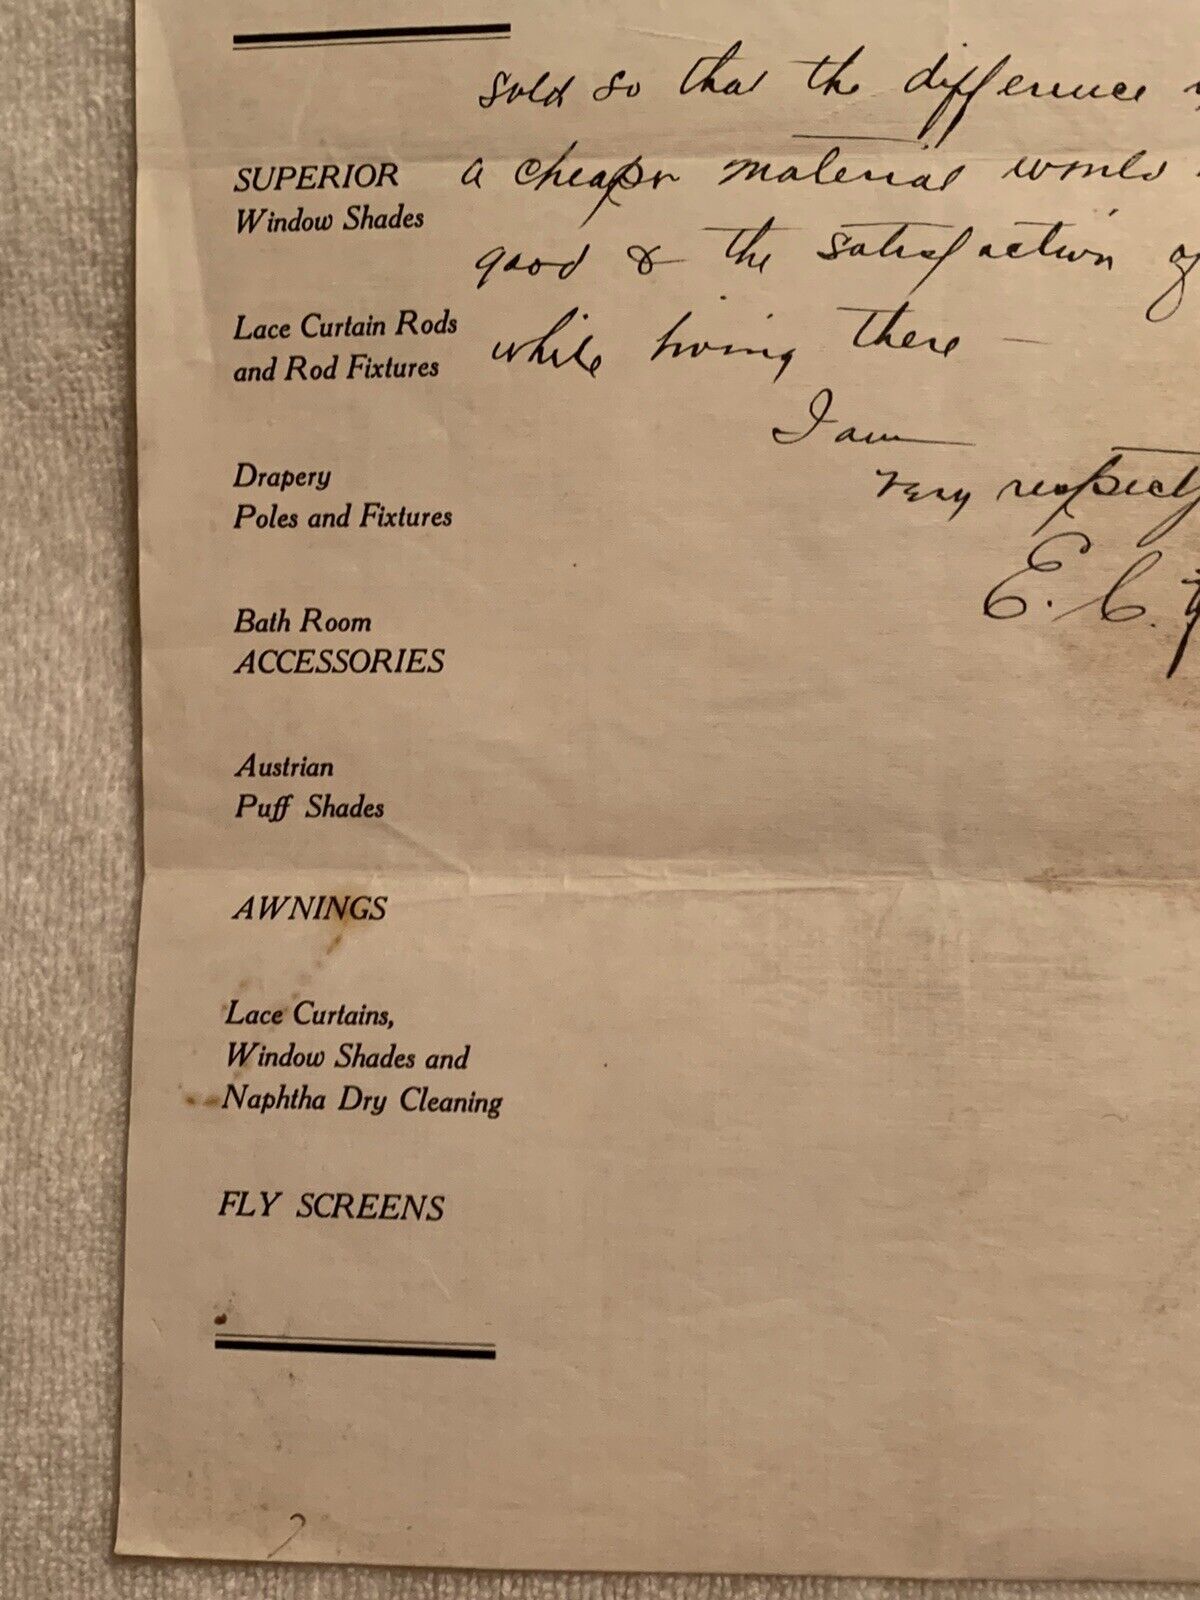 sold so that the difference
a cheaper material would
good & the satisfaction of
while living there —
I am
very respectf
E. C.
SUPERIOR
Window Shades
Lace Curtain Rods
and Rod Fixtures
Drapery
Poles and Fixtures
Bath Room
ACCESSORIES
Austrian
Puff Shades
AWNINGS
Lace Curtains,
Window Shades and
Naphtha Dry Cleaning
FLY SCREENS